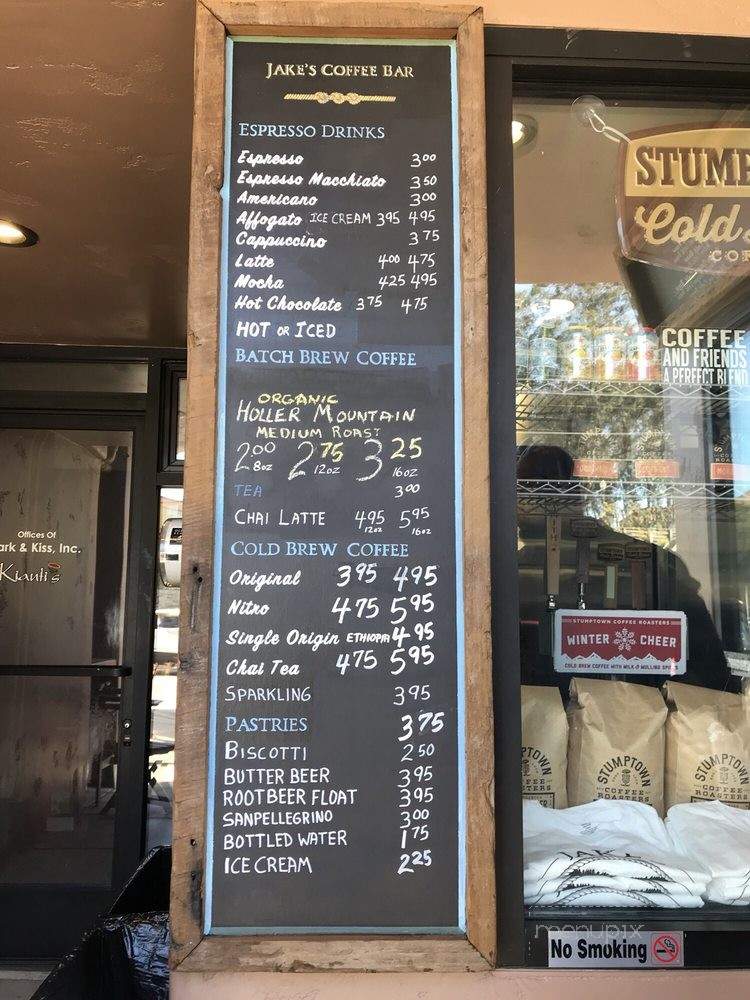 JAKE'S COFFEE BAR
ESPRESSO DRINKS
Espresso 3.00
Espresso Macchiato 3.50
Americano 3.00
Affogato ICE CREAM 3.95 4.95
Cappuccino 3.75
Latte 4.00 4.75
Mocha 4.25 4.95
Hot Chocolate 3.75 4.75
HOT OR ICED
BATCH BREW COFFEE
ORGANIC
HOLLER MOUNTAIN
MEDIUM ROAST
2.00 8oz 2.75 12oz 3.25 16oz
TEA 3.00
CHAI LATTE 4.95 12oz 5.95 16oz
COLD BREW COFFEE
Original 3.95 4.95
Nitro 4.75 5.95
Single Origin ETHIOPIA 4.95
Chai Tea 4.75 5.95
SPARKLING 3.95
PASTRIES 3.75
BISCOTTI 2.50
BUTTER BEER 3.95
ROOTBEER FLOAT 3.95
SANPELLEGRINO 3.00
BOTTLED WATER 1.75
ICE CREAM 2.25
Offices Of
ark & Kiss, Inc.
Kianti's
STUMP
Cold
COF
COFFEE
AND FRIENDS
A PERFECT BLEND
STUMPTOWN COFFEE ROASTERS
WINTER CHEER
COLD BREW COFFEE WITH MILK & MULLING SPICES
STUMPTOWN
COFFEE
ROASTERS
STUMPTOWN
COFFEE
ROASTERS
JAKE
menupix
No Smoking